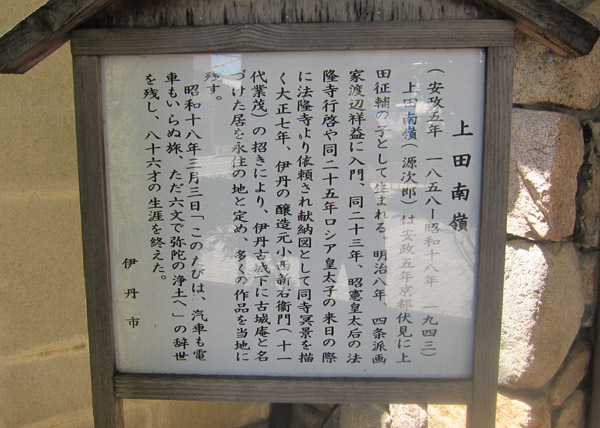 上田南嶺
(安政五年 一八五八ー昭和十八年 一九四三)
上田南嶺(源次郎)は安政五年京都伏見に上
田征輔の子として生まれる。明治八年、四条派画
家渡辺祥益に入門、同二十三年、昭憲皇太后の法
隆寺行啓や同二十五年ロシア皇太子の来日の際
に法隆寺より依頼され献納図として同寺冥景を描
く大正七年、伊丹の醸造元小西新右衛門(十一
代業茂)の招きにより、伊丹古城下に古城庵と名
づけた居を永住の地と定め、多くの作品を当地に
残す。
昭和十八年三月三日「このたびは、汽車も電
車もいらぬ旅、ただ六文で弥陀の浄土へ」の辞世
を残し、八十六才の生涯を終えた。
伊丹市